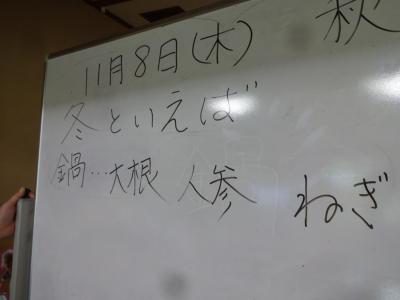 11月8日(木) 秋
冬といえば
鍋…大根 人参 ねぎ